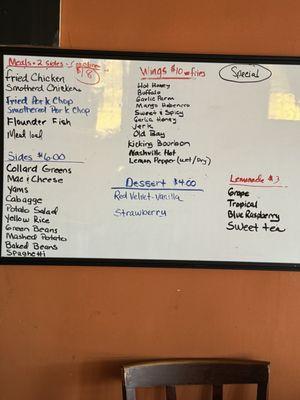 Meals + 2 sides
$18
Fried Chicken
Smothered Chicken
Fried Pork Chop
Smothered Pork Chop
Flounder Fish
Meat loaf
Sides $6.00
Collard Greens
Mac & Cheese
Yams
Cabagge
Potato Salad
Yellow Rice
Green Beans
Mashed Potato
Baked Beans
Spaghetti
Wings $10 w/fries
Hot Honey
Buffalo
Garlic Parm
Mango Habenero
Sweet & Spicy
Garlic Honey
Jerk
Old Bay
Kicking Bourbon
Nashville Hot
Lemon Pepper (wet/Dry)
Dessert $4.00
Red Velvet-Vanilla
Strawberry
Special
Lemonade $3
Grape
Tropical
Blue Raspberry
Sweet tea